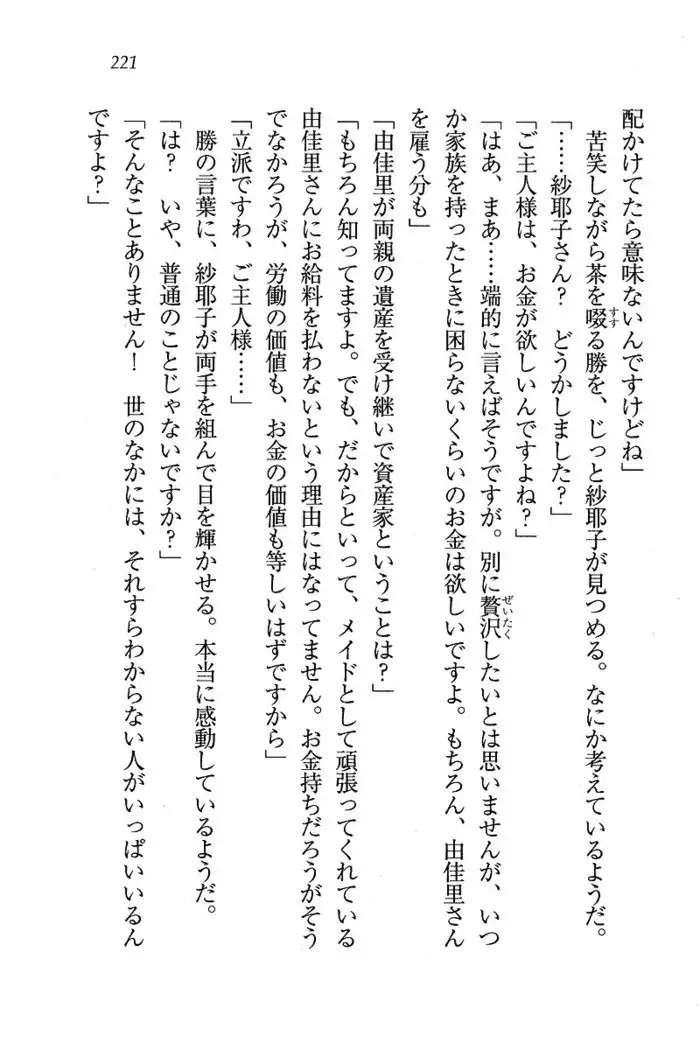 221
配かけてたら意味ないんですけどね」
　苦笑しながら茶を啜る勝を、じっと紗耶子が見つめる。なにか考えているようだ。
「……紗耶子さん？　どうかしました？」
「ご主人様は、お金が欲しいんですよね？」
「はあ、まあ……端的に言えばそうですが。別に贅沢したいとは思いませんが、いつ
か家族を持ったときに困らないくらいのお金は欲しいですよ。もちろん、由佳里さん
を雇う分も」
「由佳里が両親の遺産を受け継いで資産家ということは？」
「もちろん知ってますよ。でも、だからといって、メイドとして頑張ってくれている
由佳里さんにお給料を払わないという理由にはなってません。お金持ちだろうがそう
でなかろうが、労働の価値も、お金の価値も等しいはずですから」
「立派ですわ、ご主人様……」
　勝の言葉に、紗耶子が両手を組んで目を輝かせる。本当に感動しているようだ。
「は？　いや、普通のことじゃないですか？」
「そんなことありません！　世のなかには、それすらわからない人がいっぱいいるん
ですよ？」
すす
ぜいたく